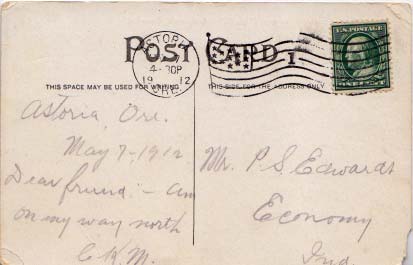 POST CARD
ASTORIA
4-30P
19 12
ORE.
1
U.S. POSTAGE
THIS SPACE MAY BE USED FOR WRITING
THIS SIDE FOR THE ADDRESS ONLY
Astoria, Ore.
May 7-1912
Dear friend:- am
on my way north
C.K.M.
Mr. P S Edwards
Economy
Ind.